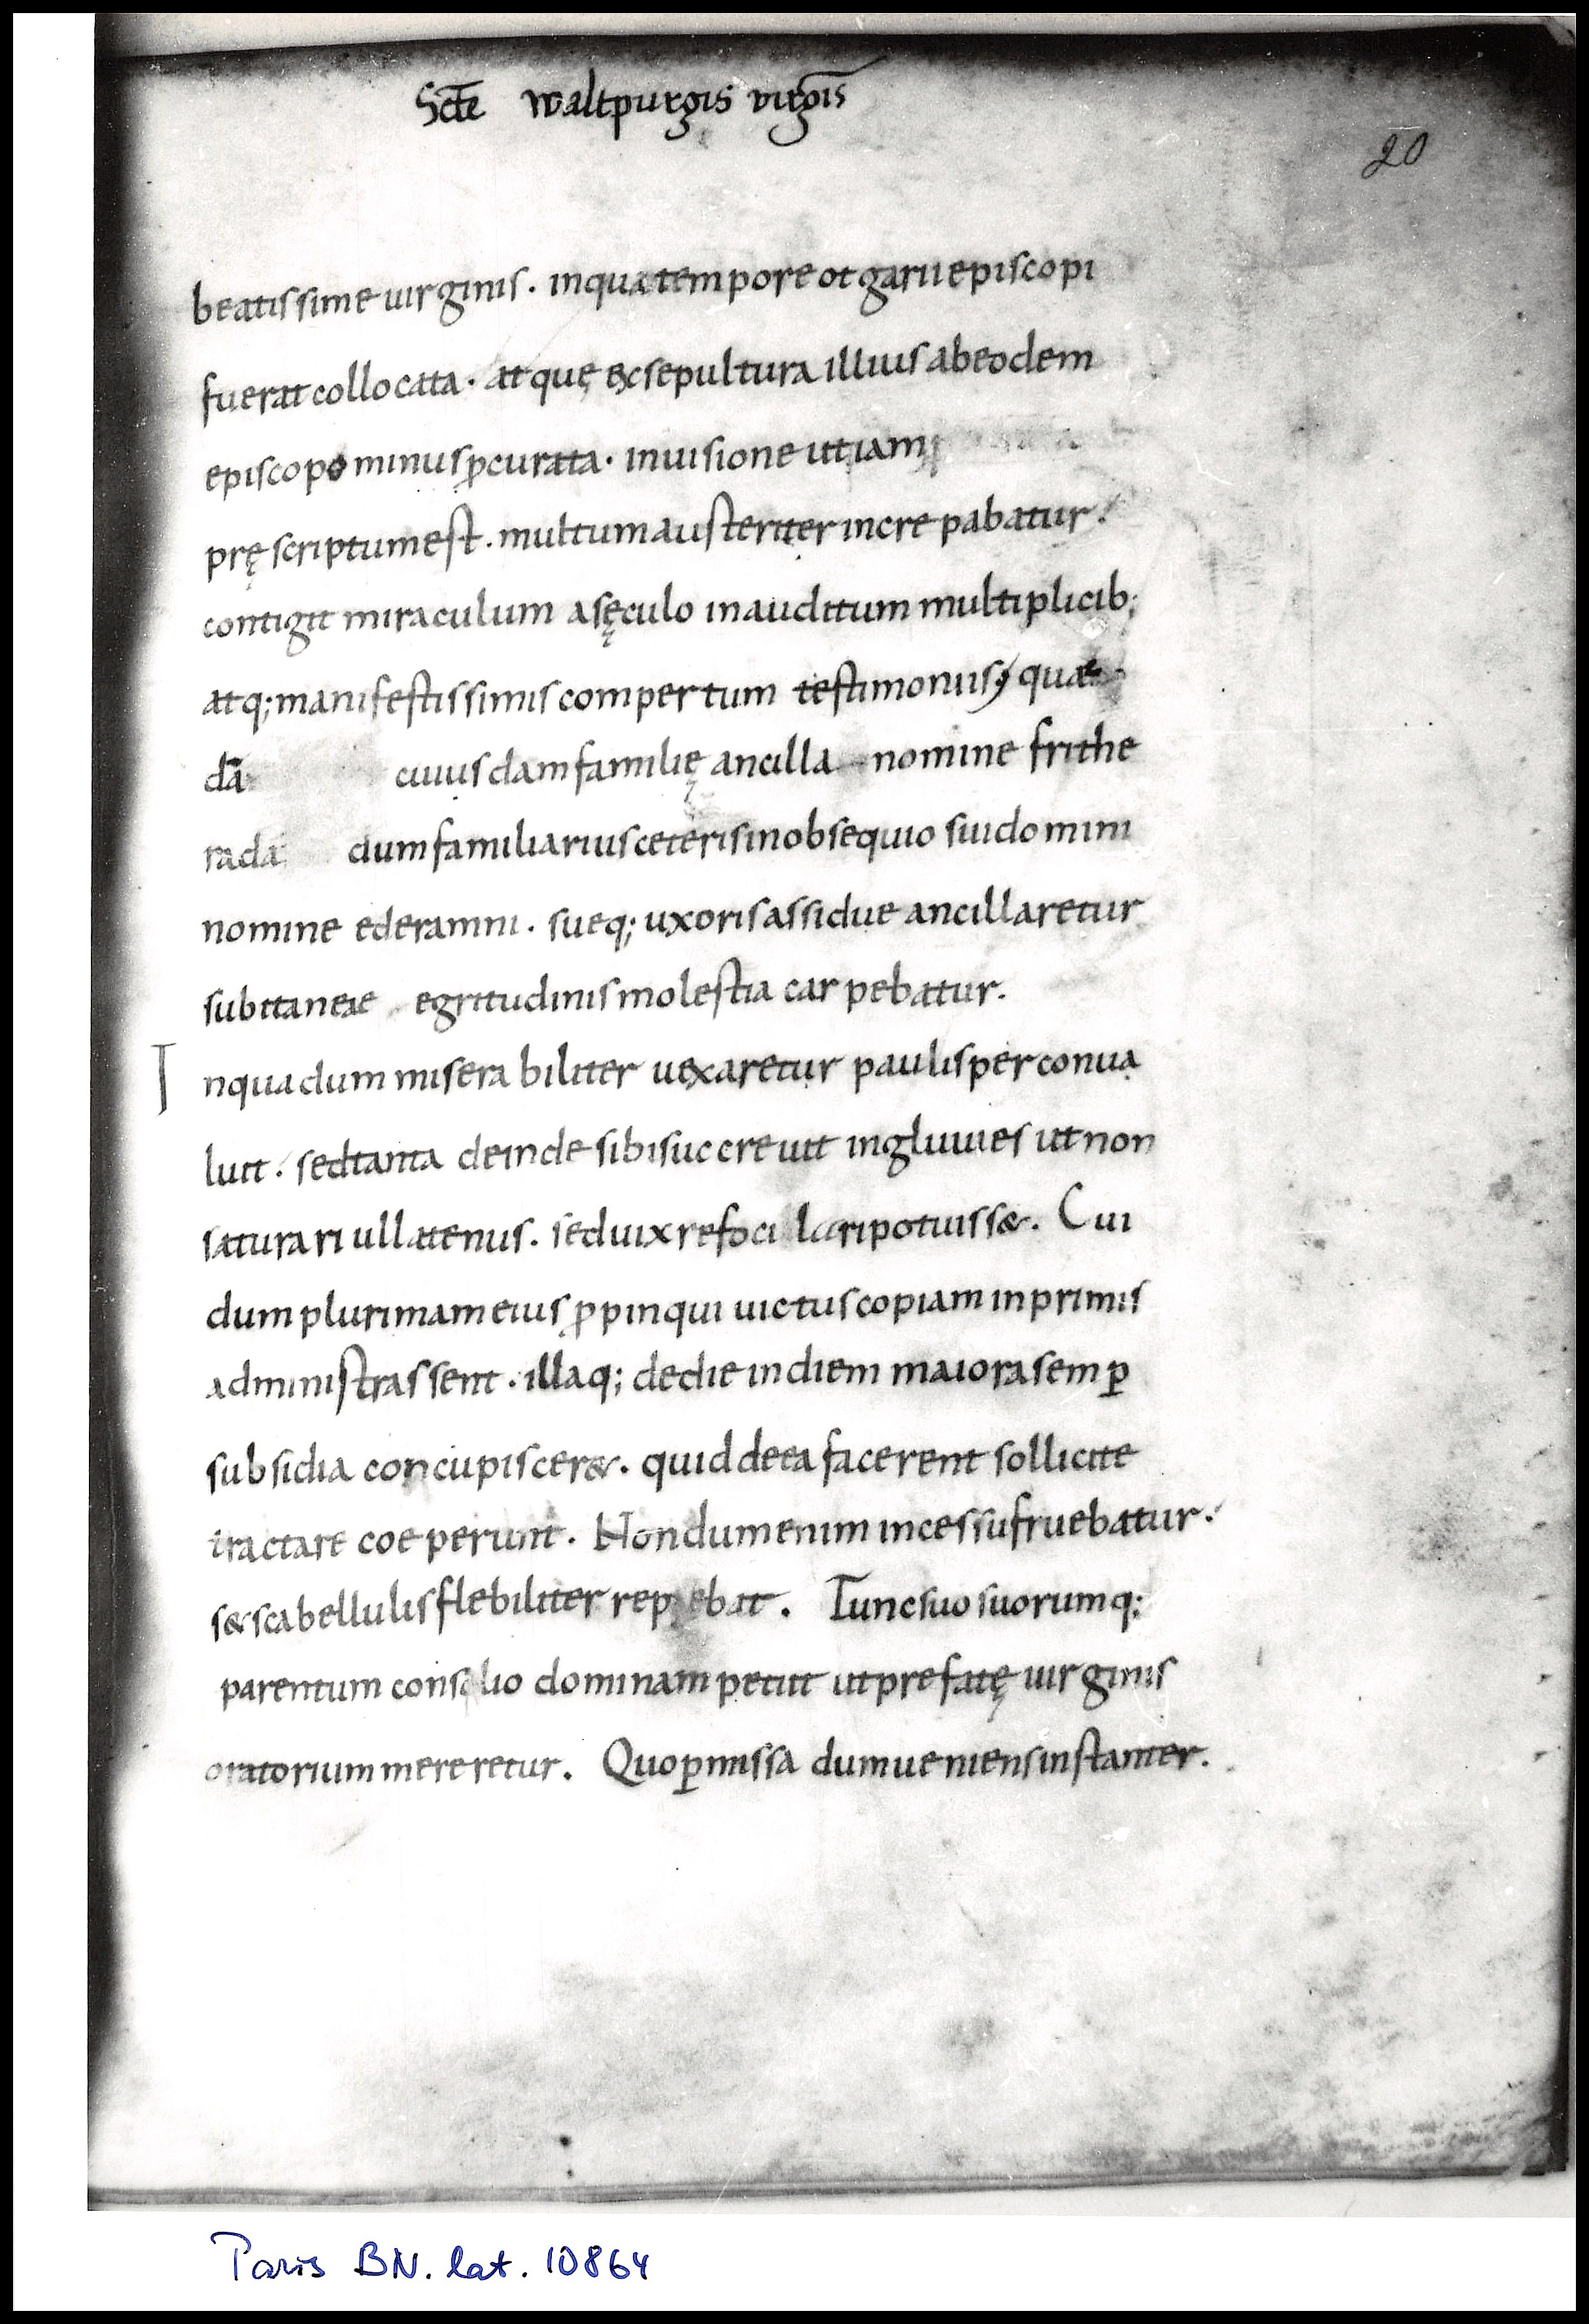 Scte waltpurgis virgis
20
beatissime uirginis . in qua tempore otgarii episcopi
fuerat collocata . atque ex sepultura illius ab eodem
episcopo minus pcurata . in uisione ut iam
pręscriptum est . multum austeriter increpabatur .
contigit miraculum a sęculo inauditum multiplicib;
atq; manifestissimis compertum testimoniis ; quae
dā cuiusdam familię ancilla nomine frithe
rada dum familiarius ceteris in obsequio sui domini
nomine ederamni . sueq; uxoris assidue ancillaretur
subitaneae egritudinis molestia carpebatur .
In qua dum miserabiliter uexaretur paulisper conua
luit . sed tanta deinde sibi succreuit ingluuies ut non
saturari ullatenus . sed uix refocilari potuiss& . Cui
dum plurimam eius ppinqui uictus copiam in primis
administrassent . illaq; de die in diem maiora semp
subsidia concupiscer& . quid de ea facerent sollicite
tractare coeperunt . Non dum enim incessu fruebatur .
s& scabellulis flebiliter repebat . Tunc suo suorumq;
parentum consilio dominam petiit ut prefatę uirginis
oratorium mereretur . Quo pmissa dum ueniens instanter .
Paris BN. lat. 10864